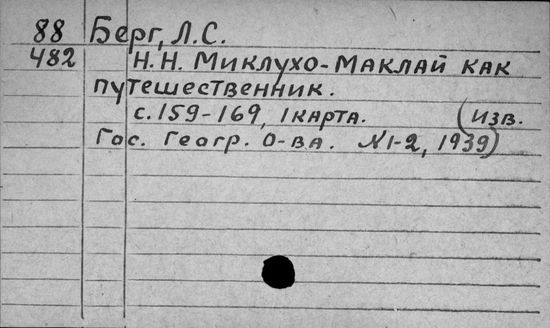 88 Берг, Л.С.
482 Н.Н. Миклухо-Маклай как
путешественник.
с. 159-169, 1 карта. (Изв.
Гос. Геогр. О-ва. N1-2, 1939)